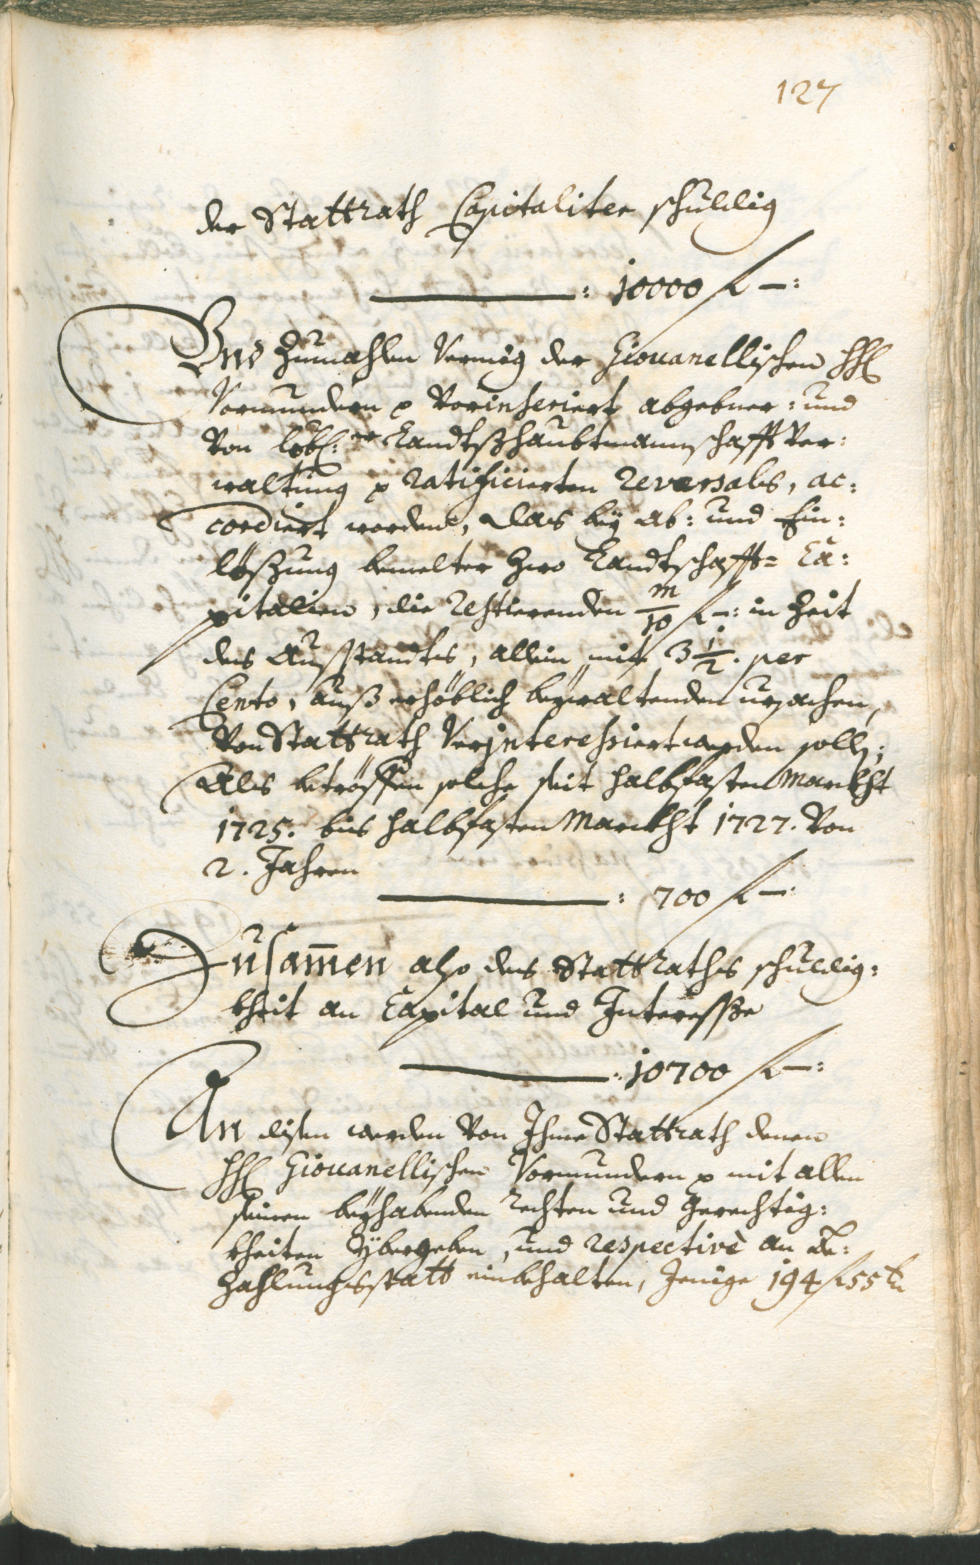 127
der Stattrath Capitaliter schuldig
: 10000 f —:
Und zumahlen Vermög der Giouanellischen HH
Vormundern p Vorinseriert abgebner: und
Von löbl: er Landtßhaubtmannschafft Ver:
waltung p ratificierten Reversales, ac:
cordiert worden, das bey ab: und Ein:
lößung bemelter zwo Landtschafft= Ca:
pitalien, die restierenden m/10 f —: in Zeit
des Ausstandts, allein mit 3 1/2. per
Cento, auß erhöblich beywaltenden ursachen,
Von Stattrath Verinteressiert werden soll;
Als betröffen solche seit Halbfasten Marckht
1725. bis Halbfasten Marckht 1727. Von
2. Jahren
: 700 f —:
Zusam̄en also des Stattraths schuldig:
kheit an Capital und Interesße
: 10700 f —:
An disen werden Von Ihme Stattrath denen
HH Giouanellischen Vormundern p mit allen
seinen beyhabenden Rechten und Gerechtig:
kheiten ybergeben, und respectivè an Be:
zahlungsstatt einbehalten, Jenige 194 f 55 k